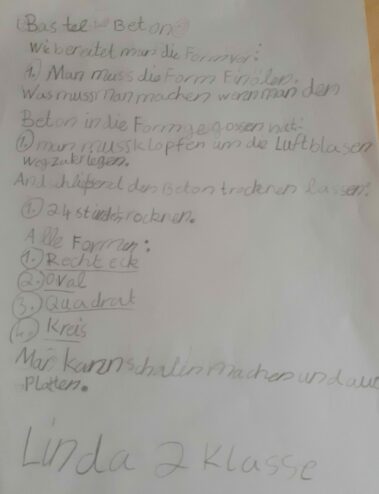 Bastel Beton
Wie bereitet man die Form vor:
1.) Man muss die Form Einölen.
Was muss man machen wenn man den
Beton in die Form gegossen hat:
1.) man muss klopfen um die Luftblasen
weg zu kriegen.
Anschließend den Beton trocknen lassen.
1.) 24 trocknen.
Alle Formen:
1.) Rechteck
2.) Oval
3.) Quadrat
4.) Kreis
Man kann schalen machen und auc
Platten.
Linda 2 Klasse